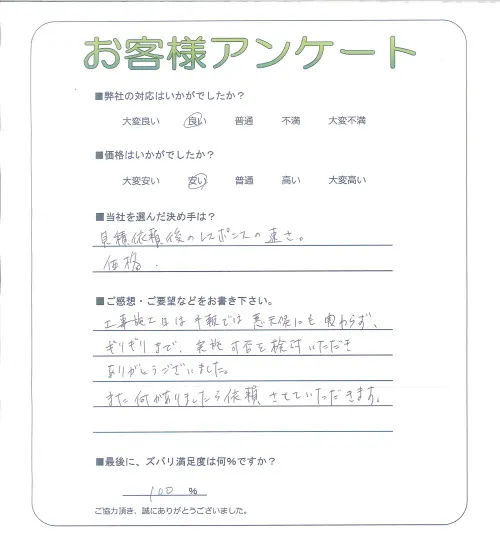 お客様アンケート
■弊社の対応はいかがでしたか？
大変良い 良い 普通 不満 大変不満
■価格はいかがでしたか？
大変安い 安い 普通 高い 大変高い
■当社を選んだ決め手は？
見積依頼後のレスポンスの速さ。
価格.
■ご感想・ご要望などをお書き下さい。
工事施工日は予報では悪天候にも関わらず、
ぎりぎりまで、実施可否を検討いただき
ありがとうございました。
また何かありましたら依頼させていただきます。
■最後に、ズバリ満足度は何%ですか？
100 %
ご協力頂き、誠にありがとうございました。